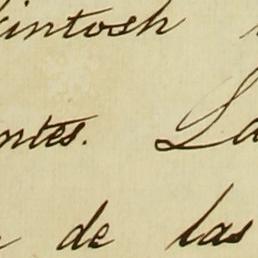 intosh
ntes. La
de las